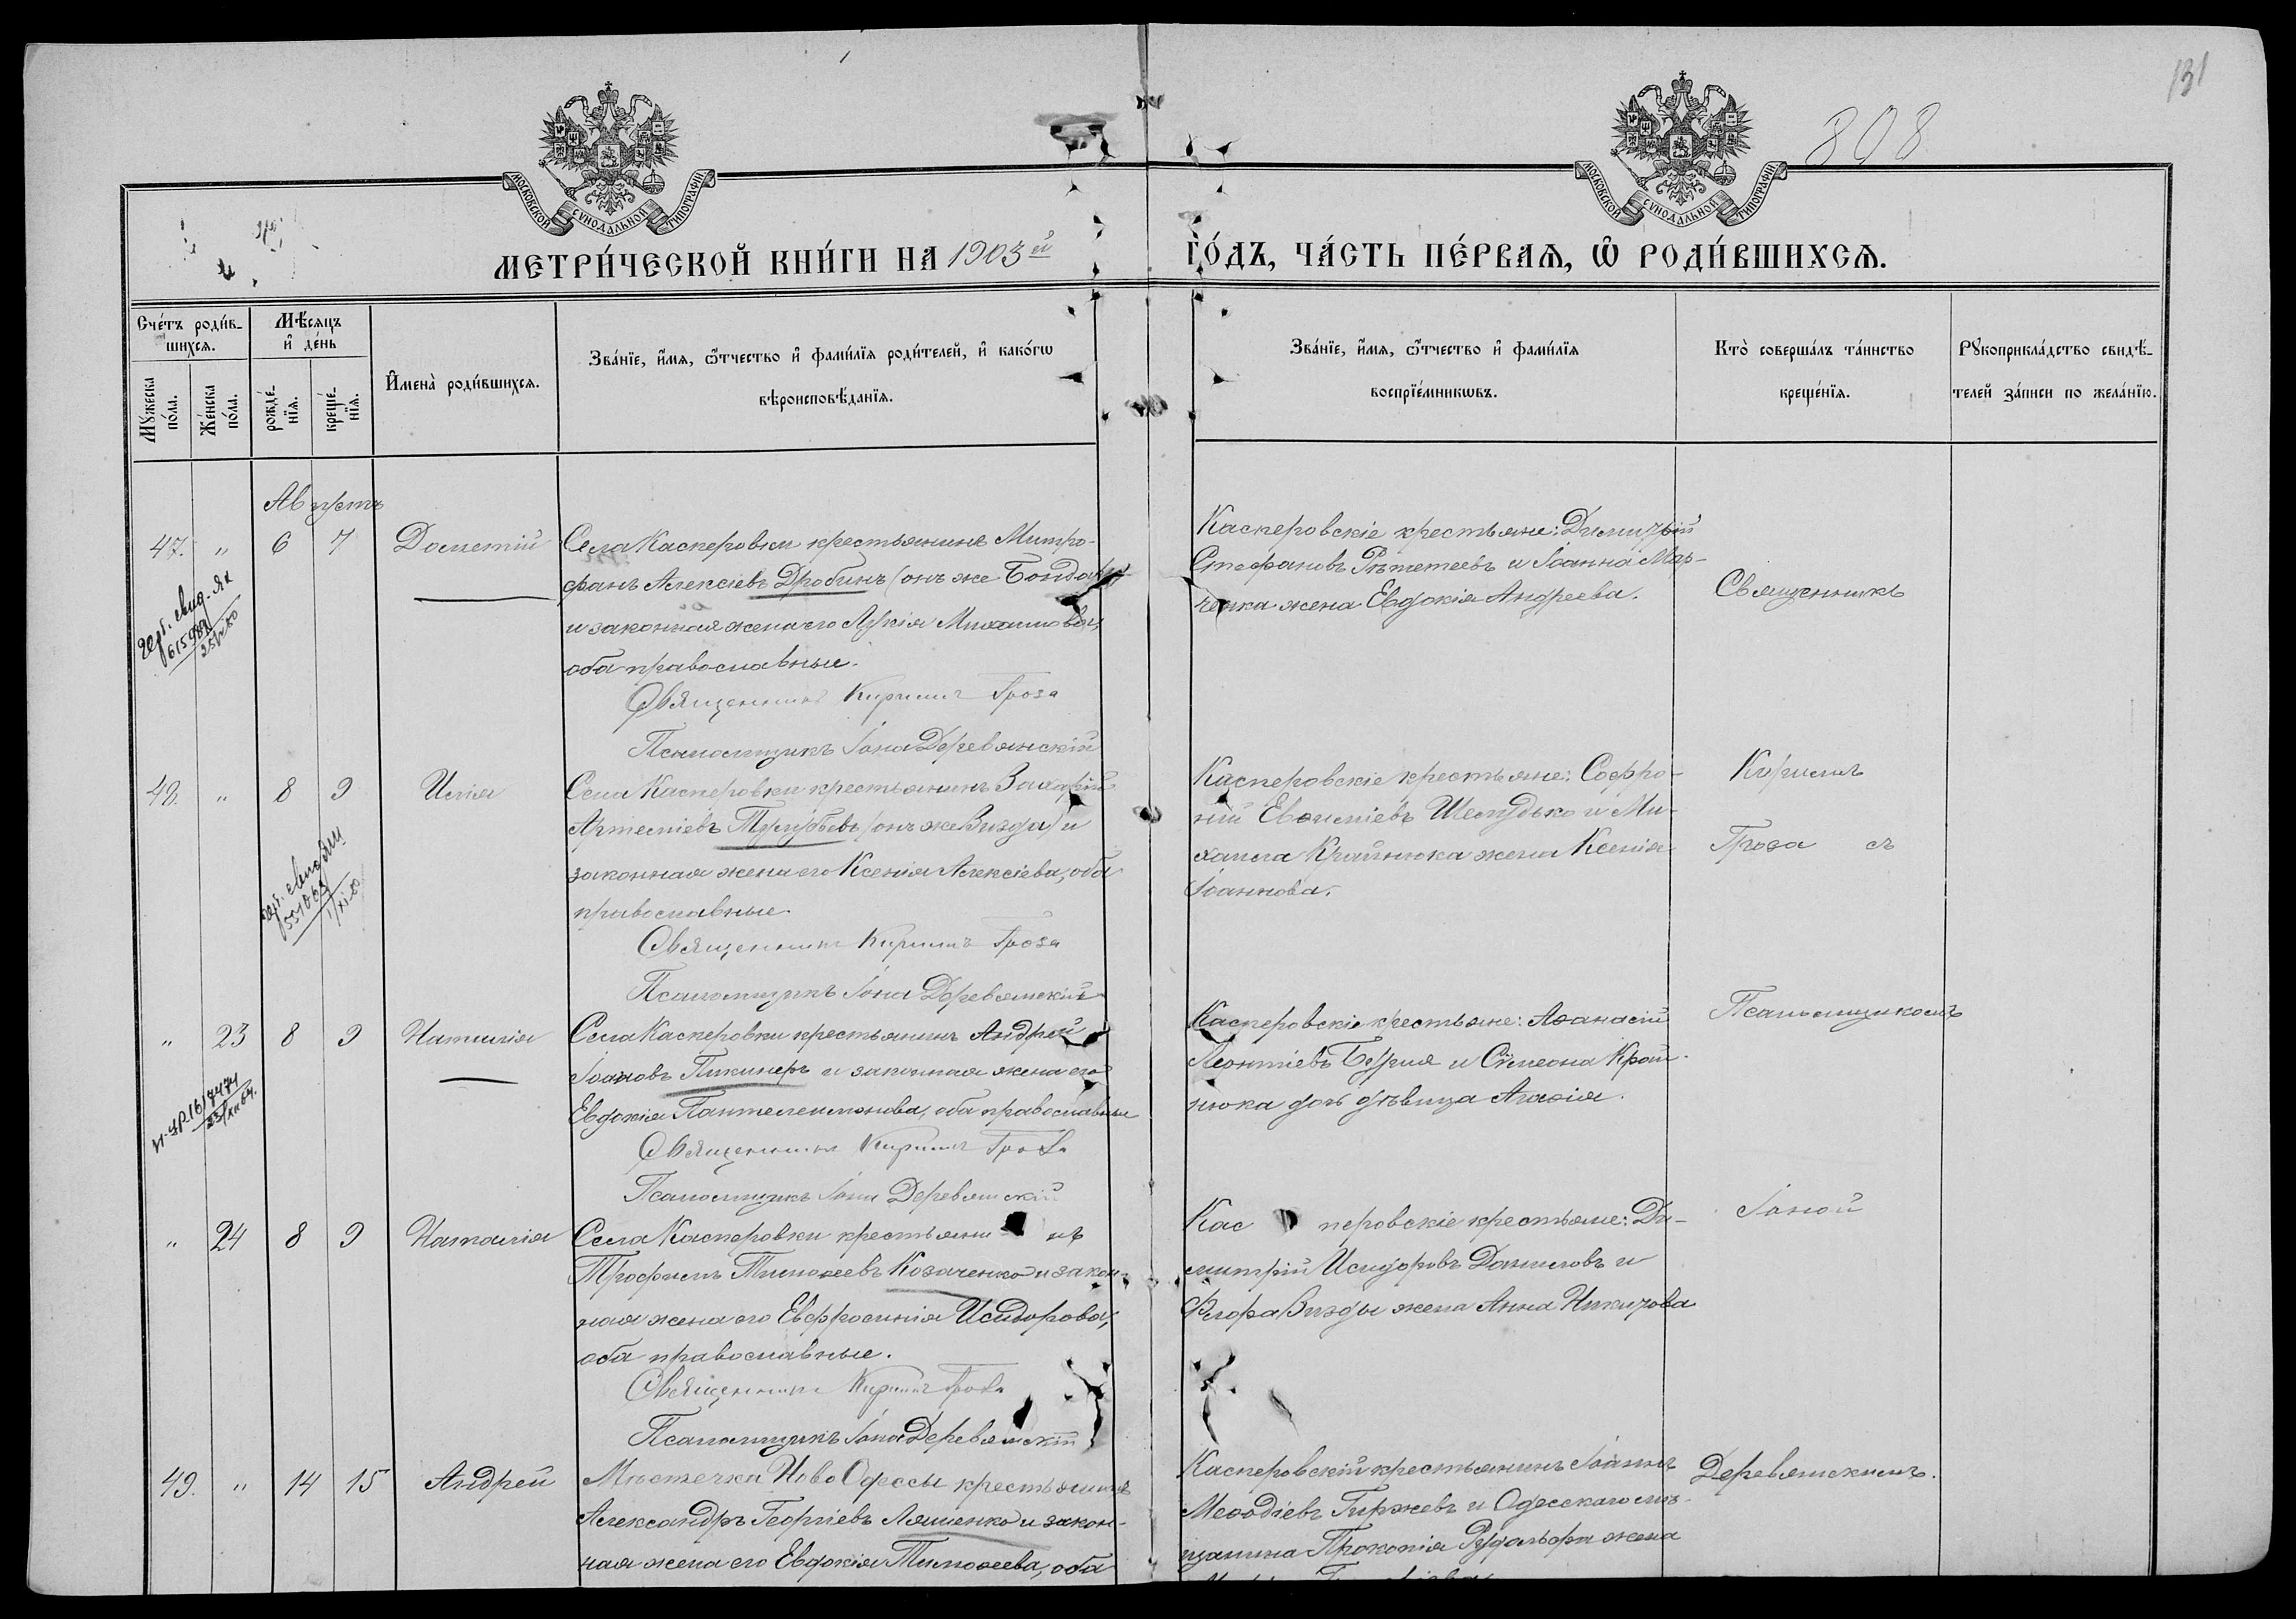 131
808
МОСКОВСКОЙ СѴНОДАЛЬНОЙ ТИПОГРАФІИ
МОСКОВСКОЙ СѴНОДАЛЬНОЙ ТИПОГРАФІИ
МЕТРИ́ЧЕСКОЙ КНИ́ГИ НА 1903й
ГО́ДЪ, ЧА́СТЬ ПЕ́РВАѦ, Ѡ҆ РОДИ́ВШИХСѦ.
Сче́тъ роди́в-
шихсѧ.
Мꙋ́жеска
по́ла.
Же́нска
по́ла.
Мѣ́сяцъ
и҆ де́нь
рожде́-
нїѧ.
креще́-
нїѧ.
И҆мена̀ роди́вшихсѧ.
Зва́нїе, и҆́мѧ, ѻ҆́тчество и҆ фами́лїѧ роди́телей, и҆ како́гѡ
вѣроисповѣ́данїѧ.
Зва́нїе, и҆́мѧ, ѻ҆́тчество и҆ фами́лїѧ
воспрїе́мникѡвъ.
Кто̀ соверша́лъ та́инство
креще́нїѧ.
Рꙋкоприкла́дство свидѣ́-
телей за́писи по жела́нїю.
Августъ
47. " 6 7 Дометій
Села Касперовки крестьянинъ Митро-
фанъ Алексіевъ Дробинъ (онъ же
и законная жена его Михаилова,
оба православные.
Священникъ Кириллъ Гроза
Псаломщикъ Іона Деревянскій
Касперовскіе крестьяне: Димитрій
Стефановъ и Іоанна Мар-
ченка жена Евдокія Андреева.
Священникъ
48. " 8 9 Илія
Села Касперовки крестьянинъ Захарій
(онъ же Визда) и
законная жена его Ксенія Алексіева, оба
православные.
Священникъ Кириллъ Гроза
Псаломщикъ Іона Деревянскій
Касперовскіе крестьяне: Софро-
ній Шелудько и Ми-
хаила Крайнюка жена Ксенія
Іоаннова.
Кириллъ
Гроза съ
" 23 8 9 Наталія
Села Касперовки крестьянинъ Андрей
Іоановъ Пикинеръ и законная жена его
Евдокія Пантелеимонова, оба православные
Священникъ Кириллъ Гроза
Псаломщикъ Іона Деревянскій
Касперовскіе крестьяне: Аѳанасій
Леонтіевъ и Сѵмеона Край-
нюка дочь дѣвица Агаѳія.
Псаломщикомъ
" 24 8 9 Наталія
Села Касперовки крестьянинъ
Трофимъ Тимоѳеевъ Козаченко и закон-
ная жена его Евфросинія Исидорова,
оба православные.
Священникъ Кириллъ Гроза
Псаломщикъ Іона Деревянскій
Касперовскіе крестьяне: Ди-
митрій Исидоровъ Даниловъ и
Флора Визды жена Анна
Іоной
49. " 14 15 Андрей
Мѣстечка Ново Одессы крестьянинъ
Александръ Георгіевъ Ляшенко и закон-
ная жена его Евдокія Тимоѳеева, оба
Касперовскій крестьянинъ Іоаннъ
Меѳодіевъ Гиржевъ и Одесскаго мѣ-
щанина Прокопія Рудольфа жена
Деревянскимъ.